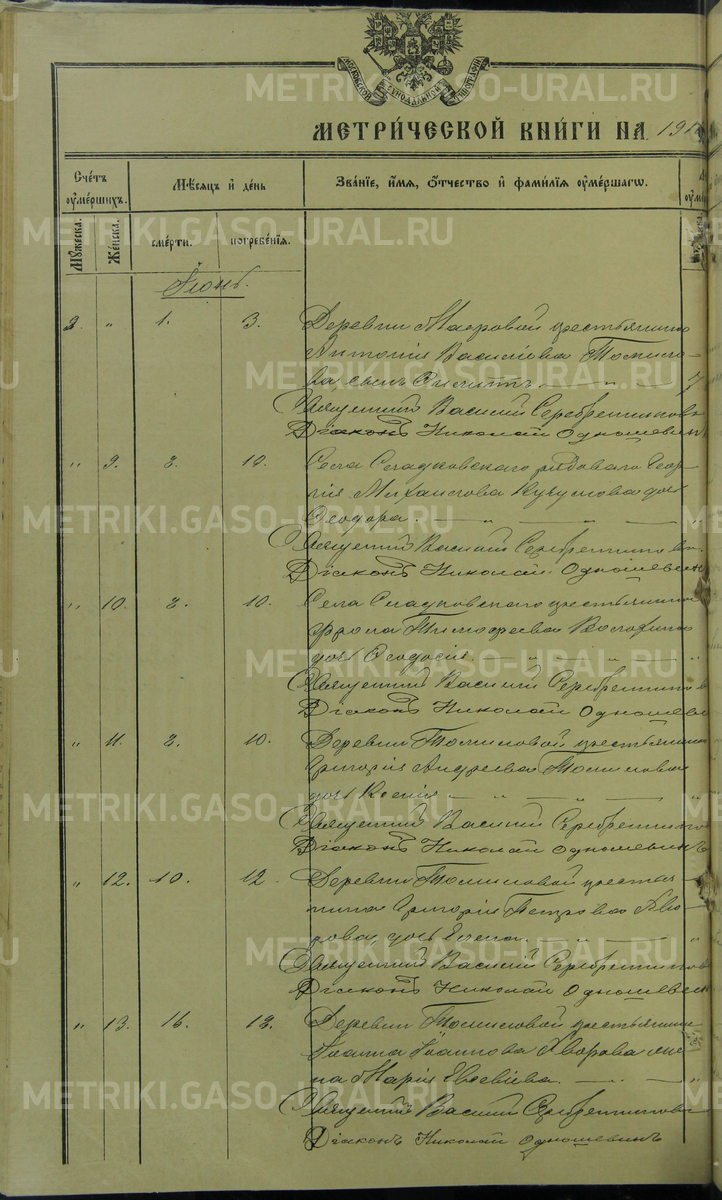 МЕТРИ́ЧЕСКОЙ КНИ́ГИ НА 191
Счётъ оу҆ме́ршихъ.
Мѣ́сяцъ и҆ де́нь
Зва́нїе, и҆́мя, ѻ҆́тчество и҆ фами́лїя оу҆ме́ршагѡ.
Мꙋ́жеска.
Же́нска.
сме́рти.
погребе́нїя.
Іюнь.
2. " 1. 3. Деревни Макровой крестьянина
Антонія Василіева Томило-
ва сынъ
Священникъ Василій Серебренниковъ
Діаконъ Николай Одношевинъ
" 9. 8. 10. Села Сладковскаго рядоваго Геор-
гія Михаилова дочь
Ѳеодора.
Священникъ Василій Серебренниковъ
Діаконъ Николай Одношевинъ
" 10. 8. 10. Села Сладковскаго крестьянина
Фрола Тимофеева дочь Ѳеодосія.
Священникъ Василій Серебренников
Діаконъ Николай Одношеви
" 11. 8. 10. Деревни Томиловой крестьянина
Григорія Андреева Томилова
дочь Ксенія
Священникъ Василій Серебренников
Діаконъ Николай Одношевинъ
" 12. 10. 12. Деревни Томиловой крестья-
нина Григорія Петрова Хво-
рова дочь Елена.
Священникъ Василій Серебренников
Діаконъ Николай Одношевин
" 13. 16. 18. Деревни Томиловой крестьянина
Іоанна Іоаннова Хворова же-
на Марія Евсевіева.
Священникъ Василій Серебренников
Діаконъ Николай Одношевинъ
METRIKI.GASO-URAL.RU